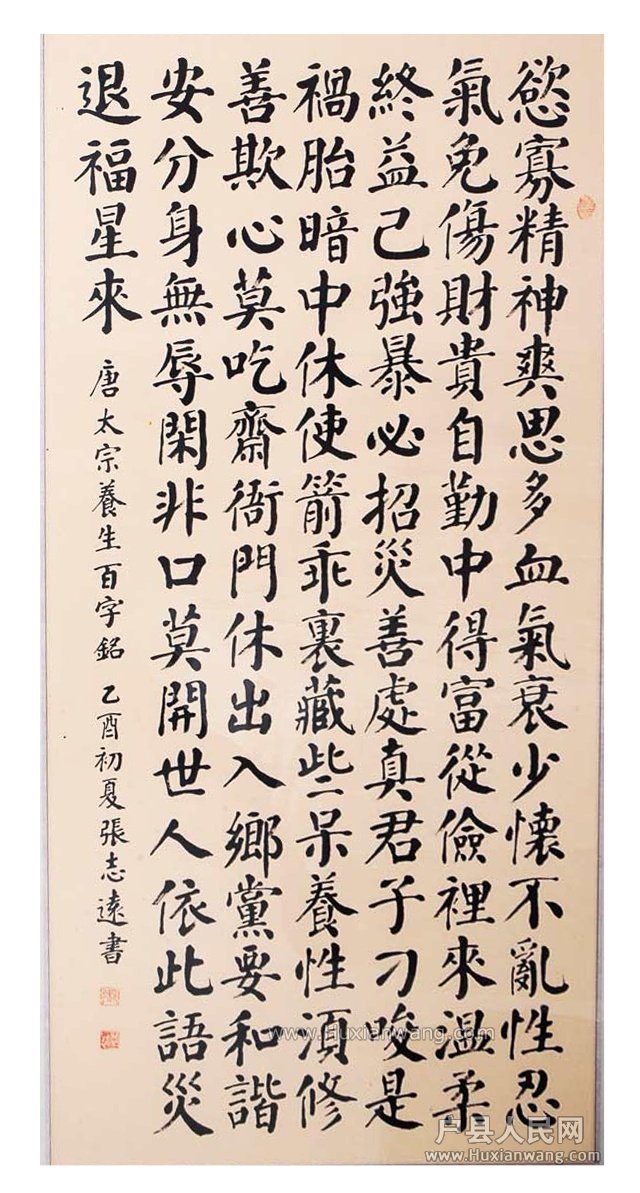 慾寡精神爽思多血氣衰少懷不亂性忍
氣免傷財貴自勤中得富從儉裡來溫柔
終益己強暴必招災善處真君子刁唆是
禍胎暗中休使箭乖裏藏些呆養性須修
善欺心莫吃齋衙門休出入鄉黨要和諧
安分身無辱閑非口莫開世人依此語災
退福星來
唐太宗養生百字銘 乙酉初夏張志遠書
www.Huxianwang.com
户县人民网
www.Huxianwang.com